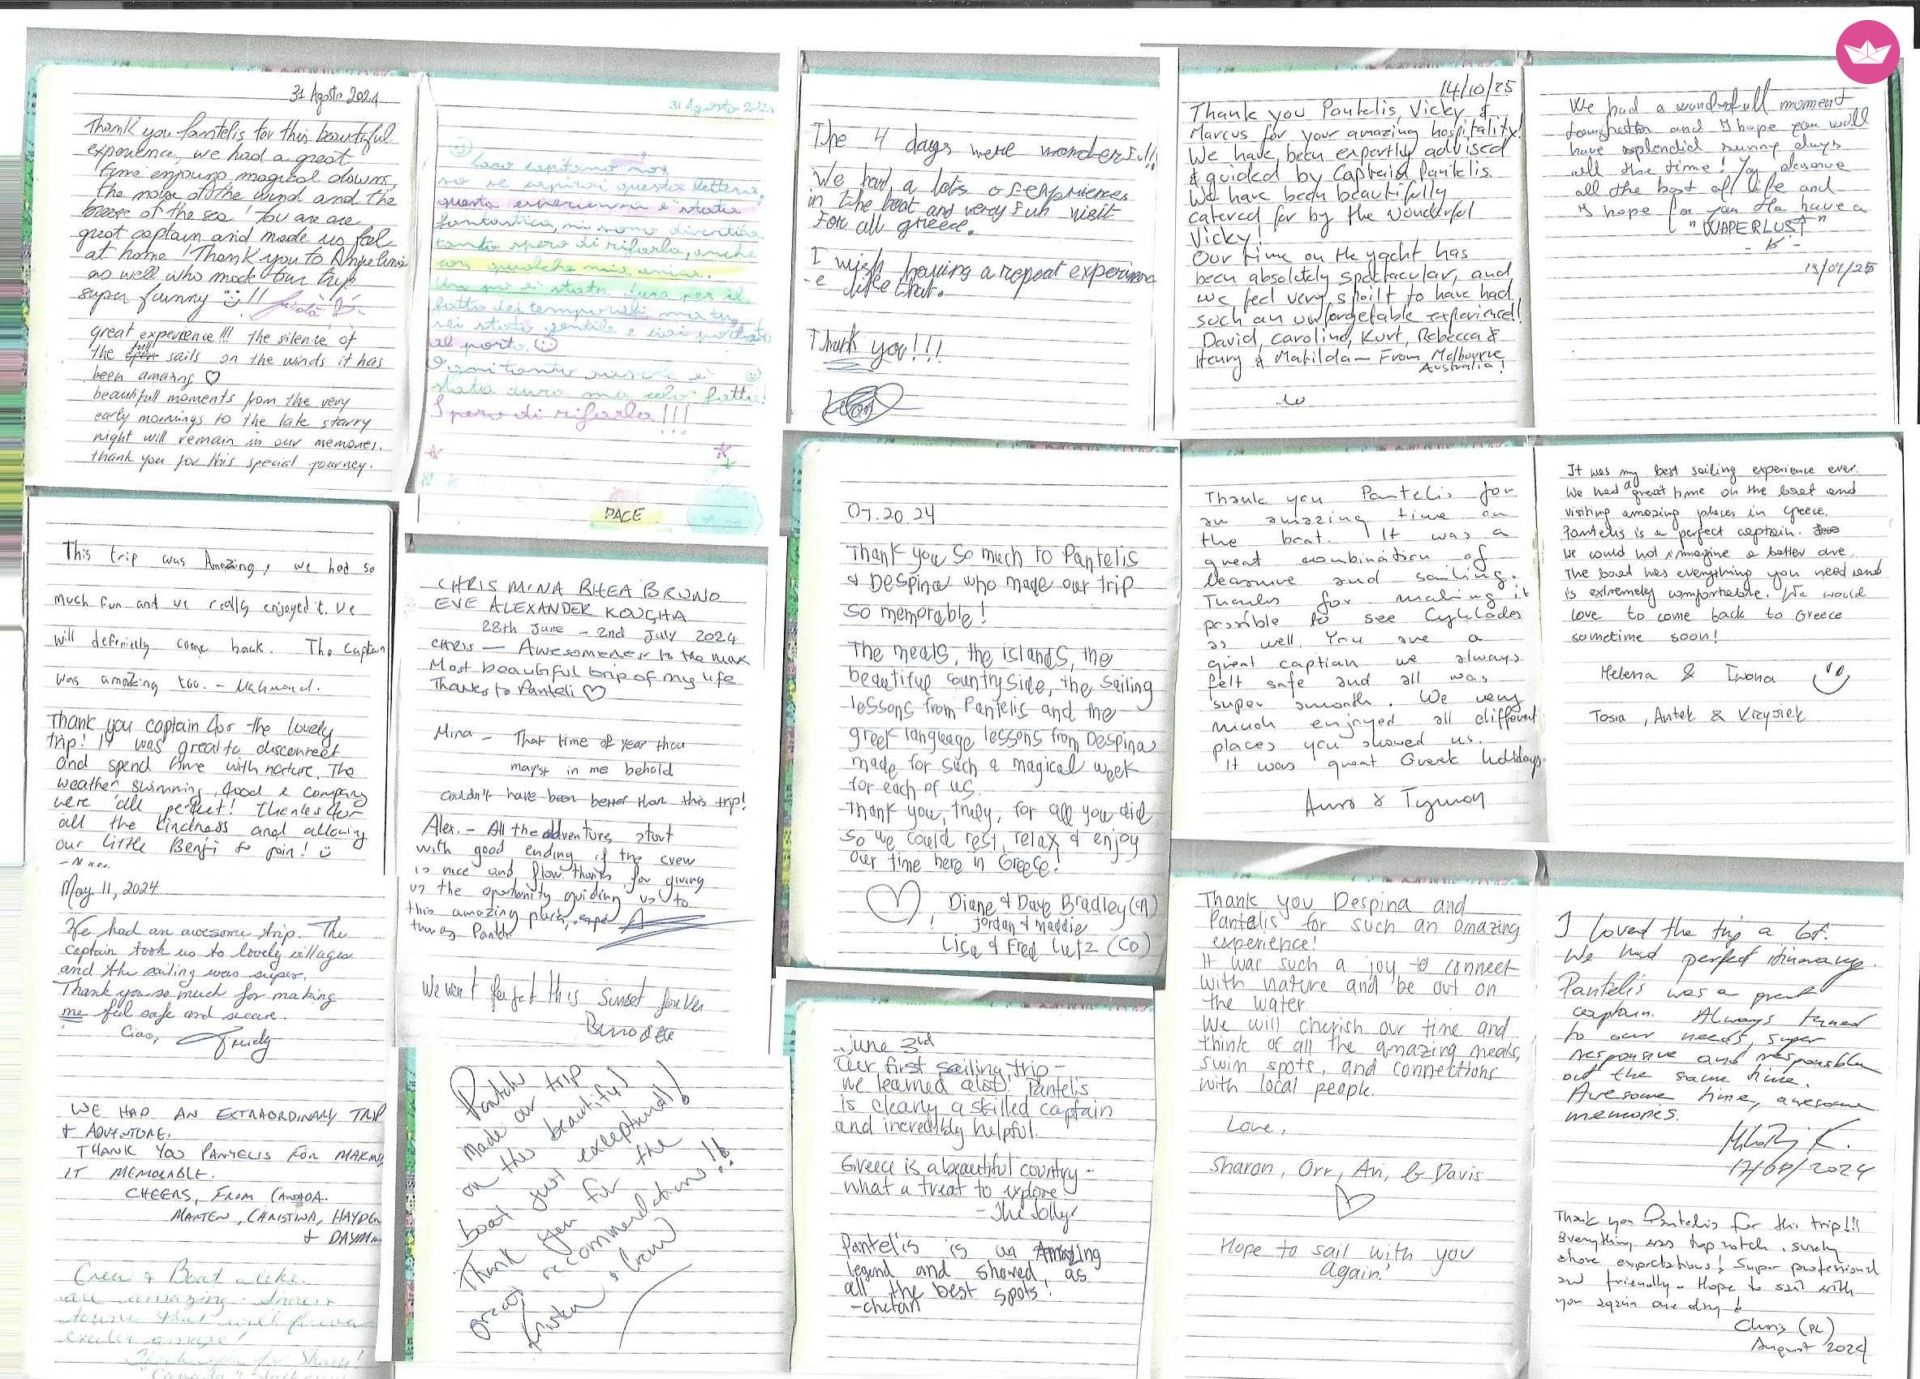 31 Agosto 2024
Thank you Pantelis for this beautiful
experience, we had a great
time enjoying magical downs,
the noise of the wind and the
breeze of the sea! You are are
great captain and made us feel
at home! Thank you to Angelina
as well who made our trip
super funny !!
great experience!!! the silence of
the full sails on the winds it has
been amazing ♡
beautifull moments from the very
early mornings to the late starry
night will remain in our memories.
thank you for this special journey.
31 Agosto 2024
Caro capitano non
so se capirai questa lettera,
questa esperienza è stata
fantastica, mi sono divertita
tanto spero di rifarla, anche
con qualche mia amica.
è stata dura per il
fatto dei temporali ma tu
sei stato gentile e ci hai portati
al porto.
è
stata dura ma
Spero di rifarla!!!
PACE
The 4 days were wonderful!!
We had a lots of experiences
in the boat and very fun visit
for all greece.
I wish having a repeat experienc
-e like that.
Thank you!!!
14/10/25
Thank you Pantelis, Vicky &
Marcus for your amazing hospitality!
We have been expertly advised
& guided by Captain Pantelis.
We have been beautifully
catered for by the wonderful
Vicky!
Our time on the yacht has
been absolutely spectacular, and
we feel very spoilt to have had
such an unforgetable experience!
David, Caroline, Kurt, Rebecca &
Henry & Matilda — From Melbourne
Australia!
We had a wonderfull moment
toughether and I hope you will
have splendid sunny days
all the time! You deserve
all the best of life and
I hope for you tho have a
"WAPERLUST"
This trip was Amazing, we had so
much fun and we really enjoyed it. We
will definitely come back. The Captain
was amazing too. - Mahmoud.
Thank you captain for the lovely
trip! It was great to disconnect
and spend time with nature. The
weather, swimming, food & company
were all perfect! Thanks for
all the kindness and allowing
our little Benji to join!
May 11, 2024
We had an awesome trip. The
captain took us to lovely villages
and the sailing was super.
Thank you so much for making
me feel safe and secure.
Ciao, Trudy
WE HAD AN EXTRAORDINARY TRIP
& ADVENTURE.
THANK YOU PANTELIS FOR MAKING
IT MEMORABLE.
CHEERS, FROM CANADA.
MARTEN, CHRISTINA, HAYDEN
&
Crew & Boat alike
are amazing.
CHRIS MINA RHEA BRUNO
EVE ALEXANDER KOUCHA
28th June - 2nd July 2024
CHRIS — Awesomeness to the max
Most beautiful trip of my life
Thanks to Panteli ♡
Mina - That time of year thou
mayst in me behold
couldn't have been better than this trip!
Alex. - All the adventures start
with good ending if the crew
is nice and flow thanks for giving
us the oportunity guiding us to
this amazing
We won't forget this sunset forever
Pantelis
made our trip
on this beautiful
boat just exceptional!
Thank you for the
great recommendations!!
& crew
07.20.24
Thank you so much to Pantelis
& Despina who made our trip
so memorable!
The meals, the islands, the
beautiful countryside, the sailing
lessons from Pantelis and the
greek language lessons from Despina
made for such a magical week
for each of us.
Thank you, truly, for all you did
so we could rest, relax & enjoy
our time here in Greece!
Diane & Dave Bradley (CA)
Jordan & Maddie
Lisa & Fred Lutz (CO)
June 3rd
Our first sailing trip -
we learned alot! Pantelis
is clearly a skilled captain
and incredibly helpful.
Greece is a beautiful country -
what a treat to explore
- The Jollys
Pantelis is an Amazing
legend and showed, as
all the best spots!
- Chetan
Thank you Pantelis for
an amazing time on
the boat. It was a
great combination of
learning and sailing.
Thanks for making it
possible to see Cyklades
as well. You are a
great captian we always
felt safe and all was
super smooth. We very
much enjoyed all different
places you showed us.
It was great Greek holidays
It was my best sailing experience ever.
We had a great time on the boat and
visiting amazing places in Greece.
Pantelis is a perfect captain.
We could not imagine a better one.
The boat has everything you need and
is extremely comfortable. We would
love to come back to Greece
sometime soon!
Helena & Iwona
Tosia, Antek & Krzysiek
Thank you Despina and
Pantelis for such an amazing
experience!
It was such a joy to connect
with nature and be out on
the water
We will cherish our time and
think of all the amazing meals,
swim spots, and connections
with local people.
Love,
Sharon, Orr, Ari, & Davis
Hope to sail with you
again!
I loved the trip a lot!
We had perfect itinerary.
Pantelis was a great
captain. Always tuned
to our needs, super
responsive and responsible
at the same time.
Awesome time, awesome
memories.
17/08/2024
Thank you Pantelis for this trip!!!
Everything was top notch, surely
above expectations! Super professional
and friendly. Hope to sail with
you again one day!
Chris (PL)
August 2024